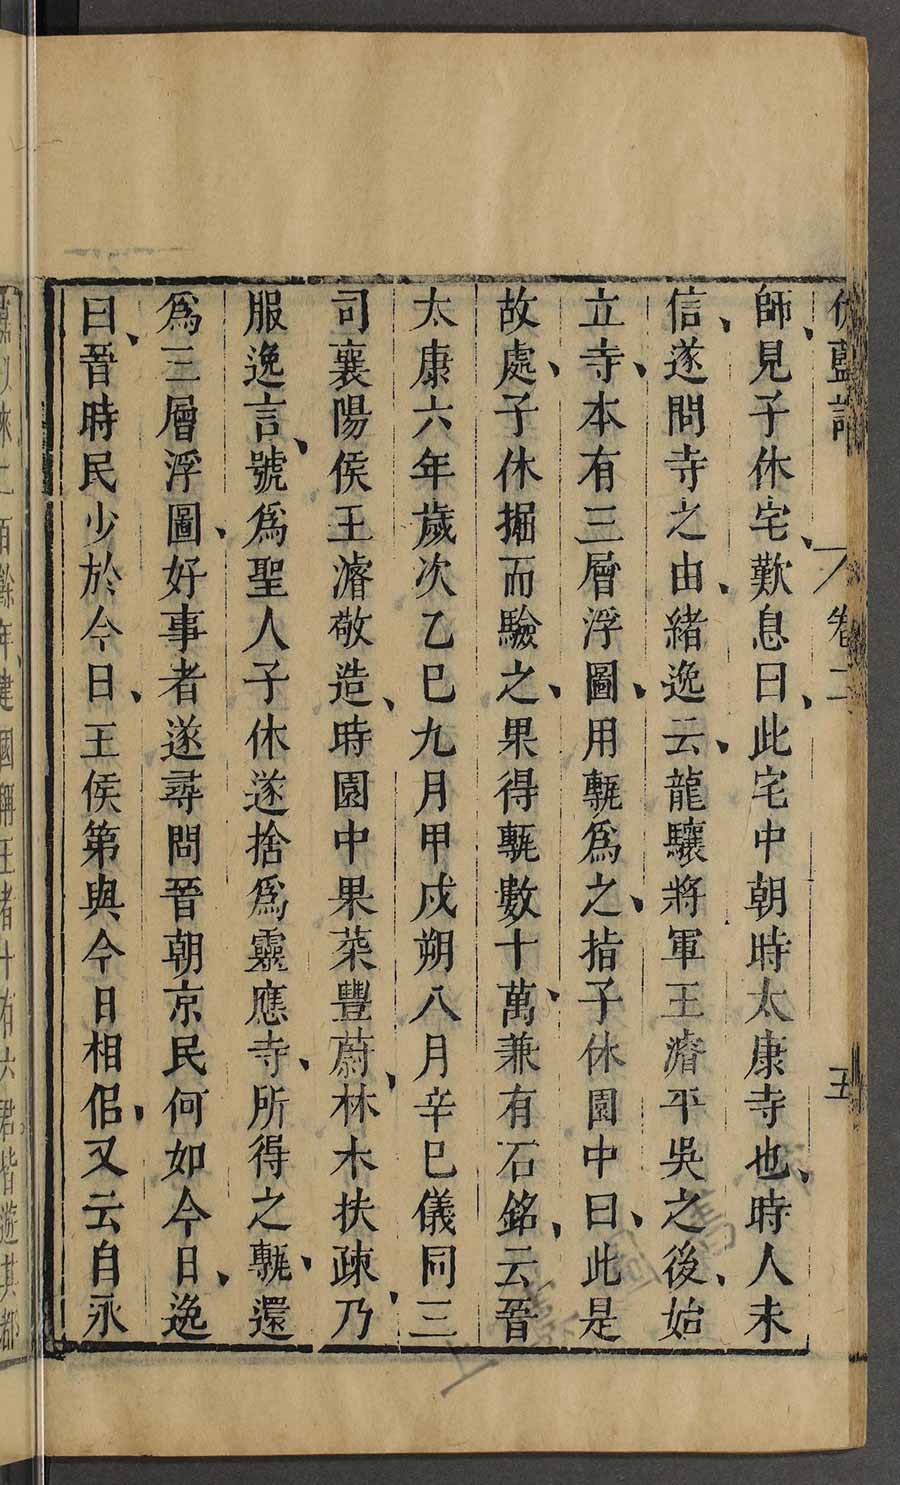 伽藍記 卷二 五
師見子休宅歎息曰此宅中朝時太康寺也時人未
信遂問寺之由緒逸云龍驤將軍王濬平吳之後始
立寺本有三層浮圖用甎爲之指子休園中曰此是
故處子休掘而驗之果得甎數十萬兼有石銘云晉
太康六年歲次乙巳九月甲戌朔八月辛巳儀同三
司襄陽侯王濬敬造時園中果菜豐蔚林木扶疎乃
服逸言號爲聖人子休遂捨爲靈應寺所得之甎還
爲三層浮圖好事者遂尋問晉朝京民何如今日逸
曰晉時民少於今日王侯第與今日相佀又云自永
嘉以來二百餘年建國稱王者十有六君皆遊其都